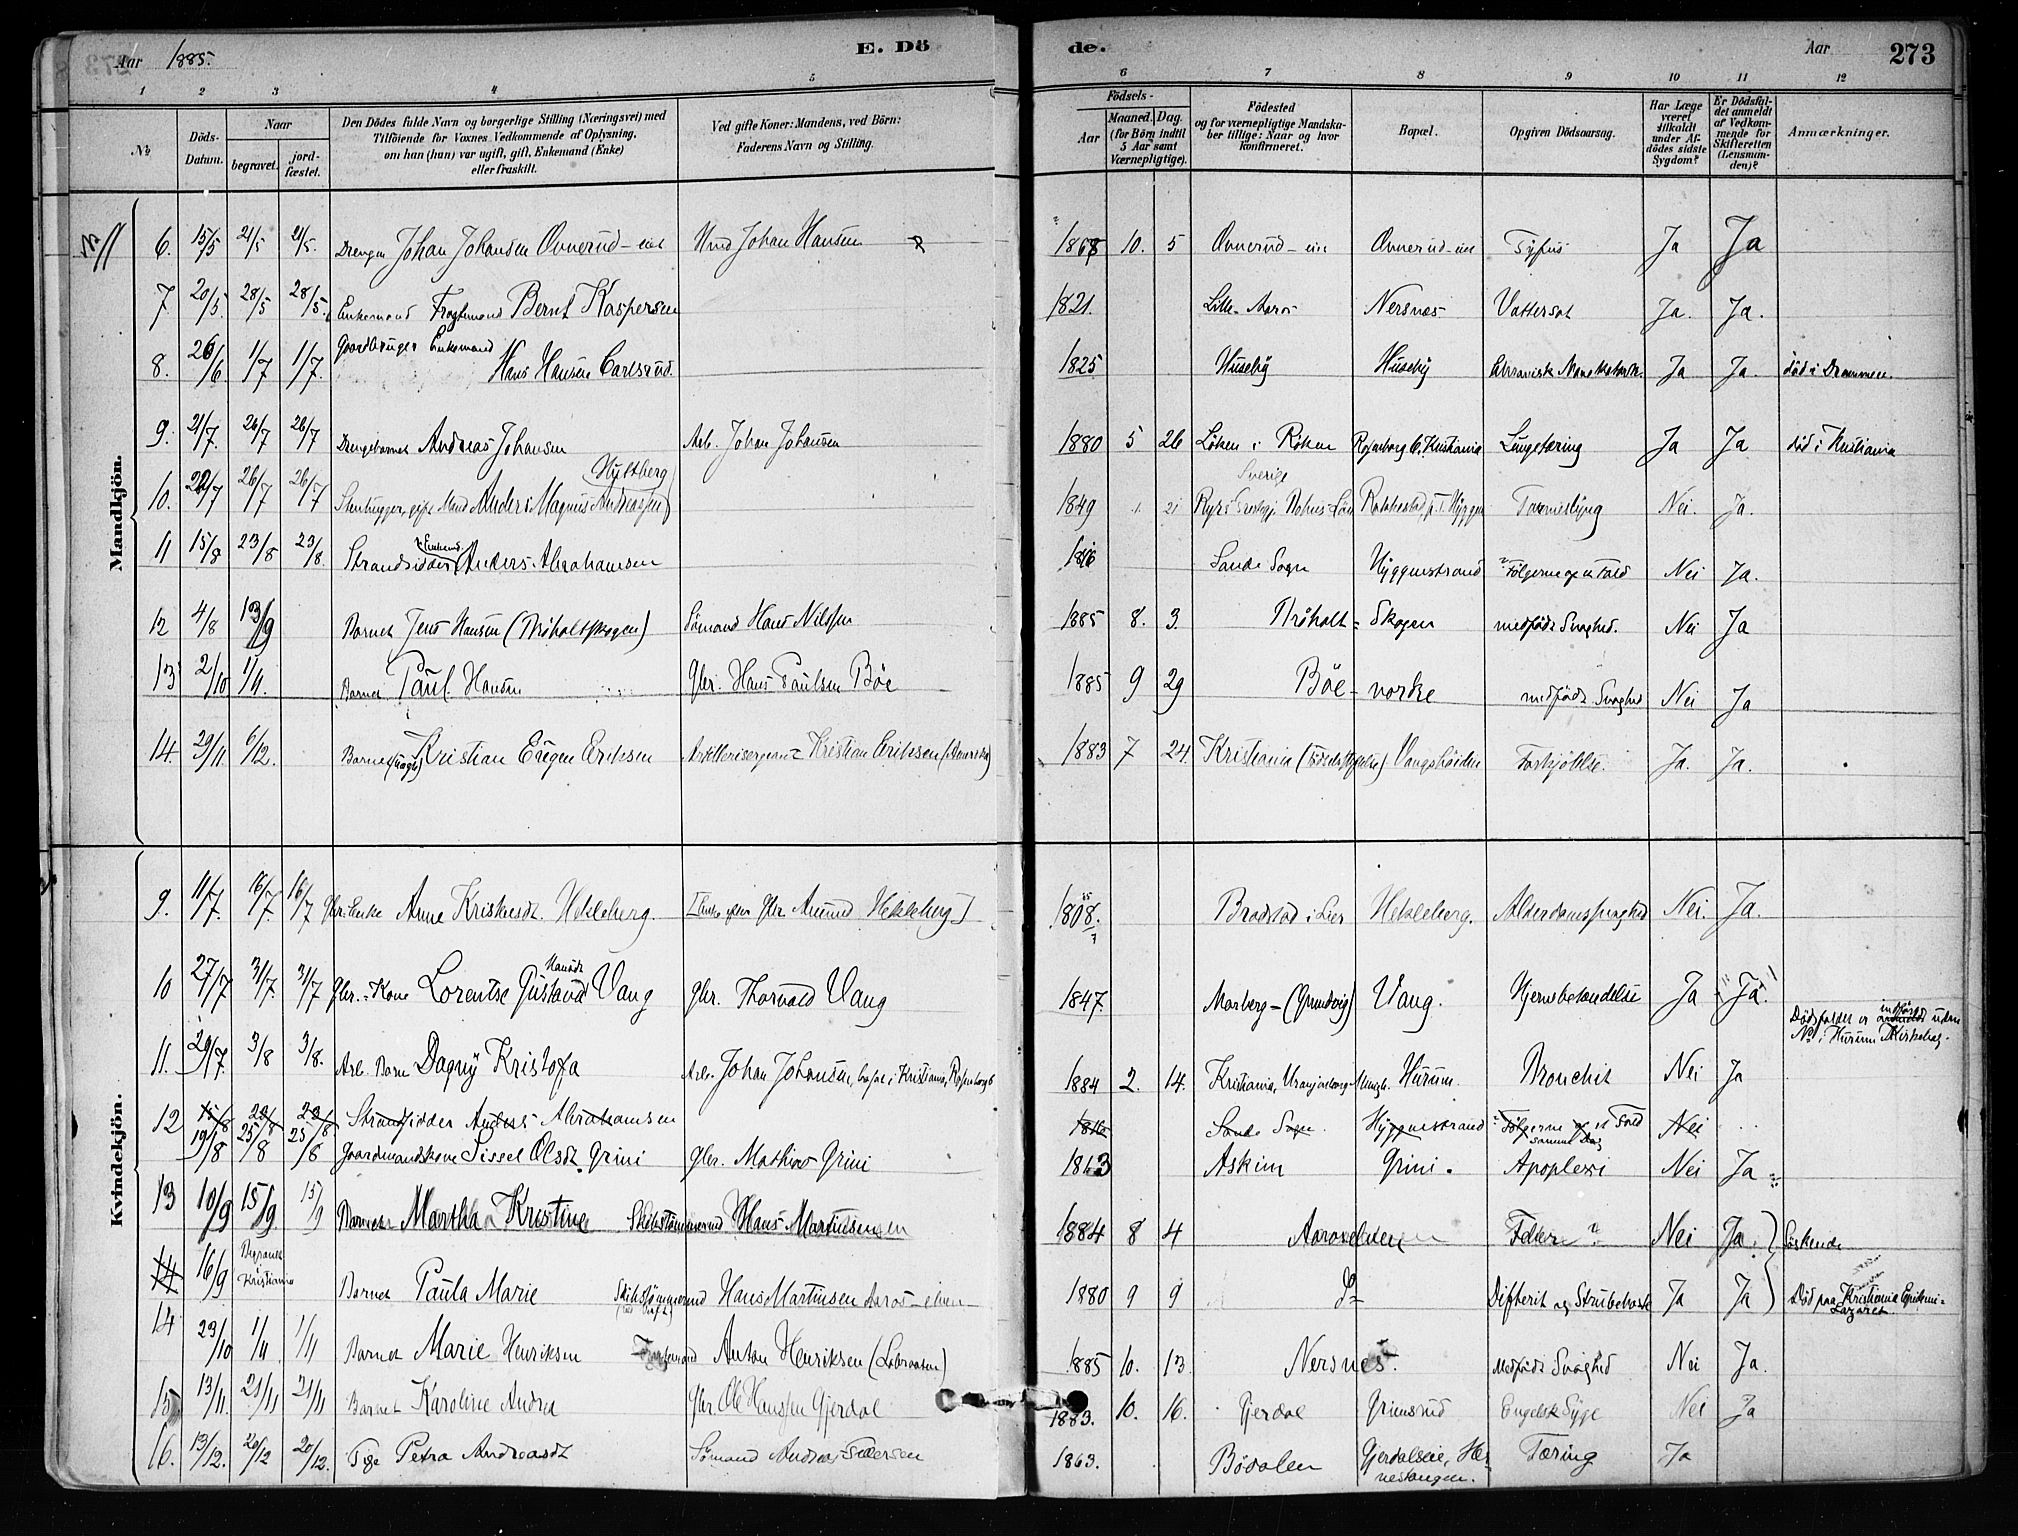 Aar 1885.
E. Döde.
Aar
273
1 2 3 4 5 6 7 8 9 10 11 12
No
Döds-Datum.
Naar
begravet.
jordfæstet.
Den Dödes fulde Navn og borgerlige Stilling (Næringsvei) med
Tilföiende for Voxnes Vedkommende af Oplysning,
om han (hun) var ugift, gift, Enkemand (Enke)
eller fraskilt.
Ved gifte Koner: Mandens, ved Börn:
Faderens Navn og Stilling.
Födsels-
Aar
Maaned. Dag.
(for Börn indtil
5 Aar samt
Værnepligtige).
Födested
og for værnepligtige Mandskaber tillige: Naar og hvor
konfirmeret.
Bopæl.
Opgiven Dödsaarsag.
Har Læge
været
tilkaldt
under Afdödes sidste
Sygdom?
Er Dödsfaldet anmeldt
af Vedkommende for
Skifteretten
(Lensmanden)?
Anmærkninger.
Mandkjön.
6. 15/5 21/5 21/5. Drengen Johan Johansen Ovnerud-eie Johan Hansen 1868 10. 5 Ovnerud-eie Ovnerud-eie Tyfus Ja Ja
7. 20/5 28/5 28/5. Enkemand Fragtemand Bernt Kaspersen 1821. Lille-Aaros Nersnæs Vattersot Ja. Ja.
8. 26/6 1/7 1/7. Gaardbruger Enkemand Hans Hansen Carlsrud. 1825 Huseby Huseby Ja Ja. död i Drammen.
9. 21/7. 26/7 26/7 Drengebarnet Andreas Johansen Arb. Johan Johansen 1880 5 26 Löken i Röken Rosenborg 6, Kristiania Lungetæring Ja Ja död i Kristiania
10. 22/7 26/7 26/7 Stenhugger, gift Mand Anders Magnus Andreasen (Hultberg) 1849 1 21 Sverige Nei. Ja.
11 15/8 23/8 23/8. Strandsidder, Enkemd Anders Abrahamsen 1816 Sande Sogn Hyggenstrand Fölgerne af et Fald Nei Ja.
12 4/8 13/9 Barnet Jens Hansen (Tröholtskogen) Sömand Hans Nilssen 1885 8. 3. Tröholt-Skogen medfödt Svaghed. Nei Ja
13 2/10 1/11. Barnet Paul Hansen Gbr. Hans Paulsen Böe 1885 9 29 Böe-nordre medfödt Svaghed Nei Ja
14. 29/11. 6/12. Barnet (uægte) Kristian Eugen Eriksen Artillerisergeant Kristian Eriksen (Amerika) 1883 7 24. Kristiania (Födselsstiftelsen) Vangshöiden Forkjölelse. Ja. Ja.
Kvindekjön.
9. 11/7. 16/7. 16/7 Gbr. Enke Anne Kristensdt. Hekleberg. [Enke efter Gbr. Amund Hekleberg] 1808. Bradstad i Lier Hekleberg. Alderdomssvaghed Nei. Ja.
10 27/7 31/7. 31/7 Gbr.-Kone Lorentse Gustava Hansdt Vang Gbr. Thorvald Vang 1847. Morberg-(Grundvig) Vang. Hjernebetændelse Ja Ja.
11. 29/7. 3/8 3/8. Arb. Barn Dagny Kristofa Arb. Johan Johansen, bosat i Kristiania, Rosenborg 6 1884 2. 14. Kristiania, Hurum. Bronchit Nei Ja Dödsfaldet er indfört uden No i Hurum Kirkebog.
12 15/8 23/8 23/8 Strandsidder Anders Abrahamsen 1816 Sande Sogn. Hyggenstrand Fölgerne af et Fald samme Dag Nei
19/8 25/8 25/8 Gaardmandskone Sissel Olsdt. Grini Gbr. Mathias Grini 1813 Askim Grini. Apoplexi Nei Ja
13 10/9 15/9 15/9 Barnet Martha Kristine Skibstömmermand Hans Martinsen 1884 8 4 Aaroselven Feber? Nei Ja. Söskende
14 16/9 Begravet i Kristiania Barnet Paula Marie Skibstömmermand Hans Martinsen Aaros-elven 1880 9 9 do Difterit og Strubehoste Ja Ja Död paa Kristiania Epidemi-Lazaret.
14 29/10 1/11. 1/11 Barnet Marie Henriksen Anton Henriksen 1885 10. 13. Nersnes. Medfödt Svaghed Nei Ja.
15 13/11. 21/11 21/11 Barnet Karoline Andrea Gbr. Ole Hansen Gjerdal 1883. 10. 16. Gjerdal Grimsrud Engelsk Syge Nei Ja
16. 13/12. 20/12 20/12. Pige Petra Andreasdt Sömand Andreas Pedersen 1863. Bödalen Gjerdalseie, Hernestangen. Tæring Ja